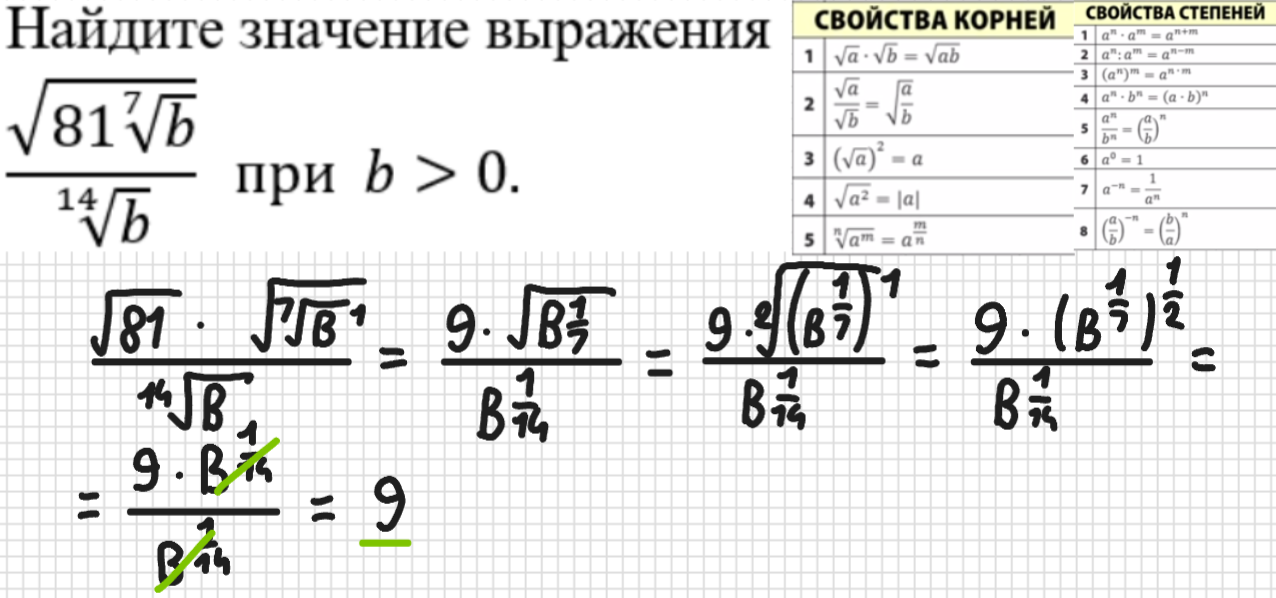 Найдите значение выражения
√(81 ⁷√b) / ¹⁴√b при b > 0.
СВОЙСТВА КОРНЕЙ
1 √a · √b = √ab
2 √a / √b = √(a/b)
3 (√a)² = a
4 √a² = |a|
5 ⁿ√aᵐ = a^(m/n)
СВОЙСТВА СТЕПЕНЕЙ
1 aⁿ · aᵐ = aⁿ⁺ᵐ
2 aⁿ : aᵐ = aⁿ⁻ᵐ
3 (aⁿ)ᵐ = aⁿ·ᵐ
4 aⁿ · bⁿ = (a · b)ⁿ
5 aⁿ / bⁿ = (a/b)ⁿ
6 a⁰ = 1
7 a⁻ⁿ = 1/aⁿ
8 (a/b)⁻ⁿ = (b/a)ⁿ
(√81 · √(⁷√B¹)) / ¹⁴√B = (9 · √(B^(1/7))) / B^(1/14) = (9 · ²√((B^(1/7))¹)) / B^(1/14) = (9 · (B^(1/7))^(1/2)) / B^(1/14) =
= (9 · B^(1/14)) / B^(1/14) = 9